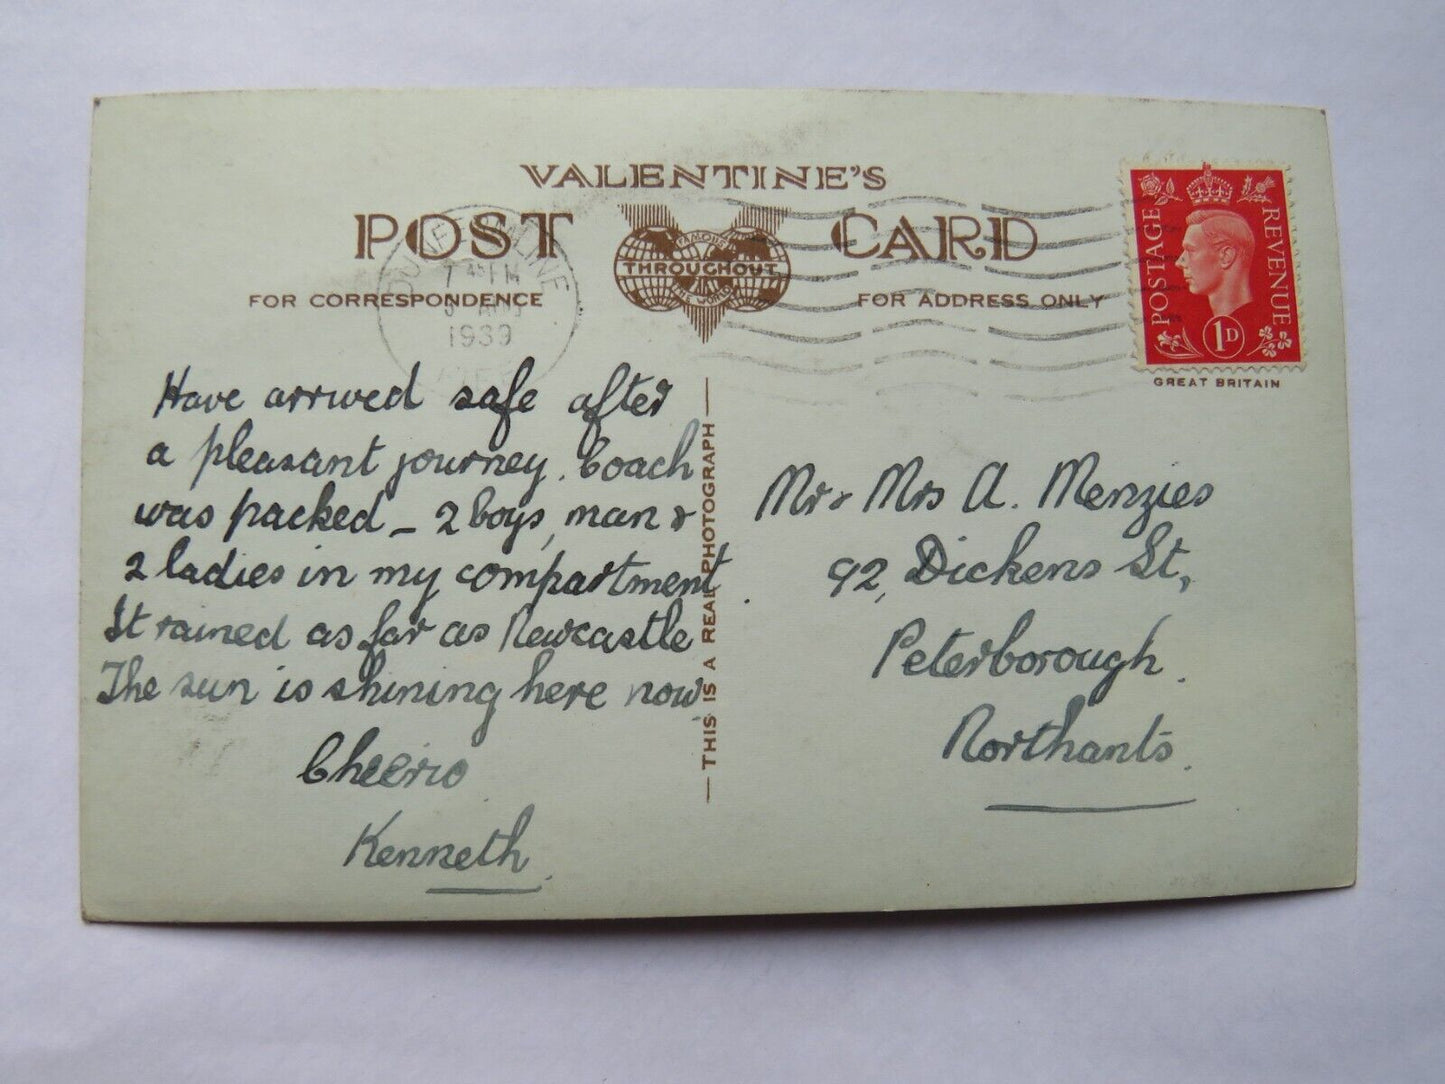 VALENTINE'S
POST CARD
FAMOUS
THROUGHOUT
THE WORLD
FOR CORRESPONDENCE
FOR ADDRESS ONLY
DUNFERMLINE
7 45 PM
AUG
1939
FIFE
POSTAGE
REVENUE
1D
GREAT BRITAIN
Have arrived safe after
a pleasant journey. Coach
was packed – 2 boys, man &
2 ladies in my compartment.
It rained as far as Newcastle
The sun is shining here now
Cheerio
Kenneth
THIS IS A REAL PHOTOGRAPH
Mr & Mrs A. Menzies
92, Dickens St,
Peterborough.
Northants.